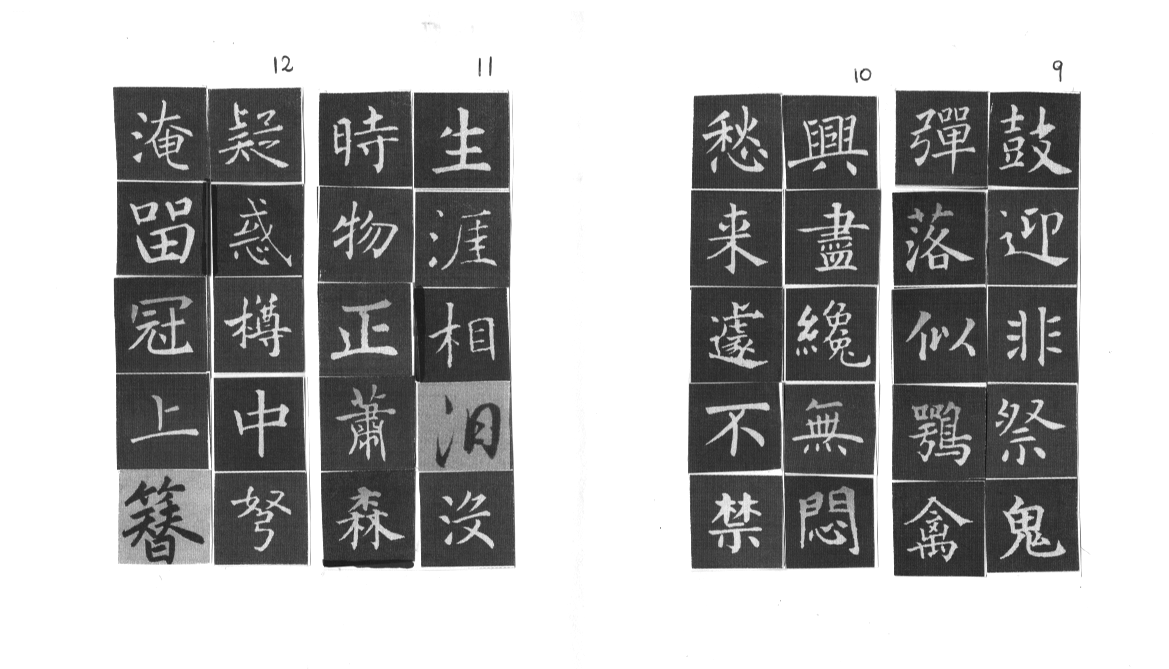 9
鼓迎非祭鬼
彈落似鶚禽
10
興盡纔無悶
愁来遽不禁
11
生涯相汩沒
時物正蕭森
12
疑惑樽中弩
淹留冠上簪